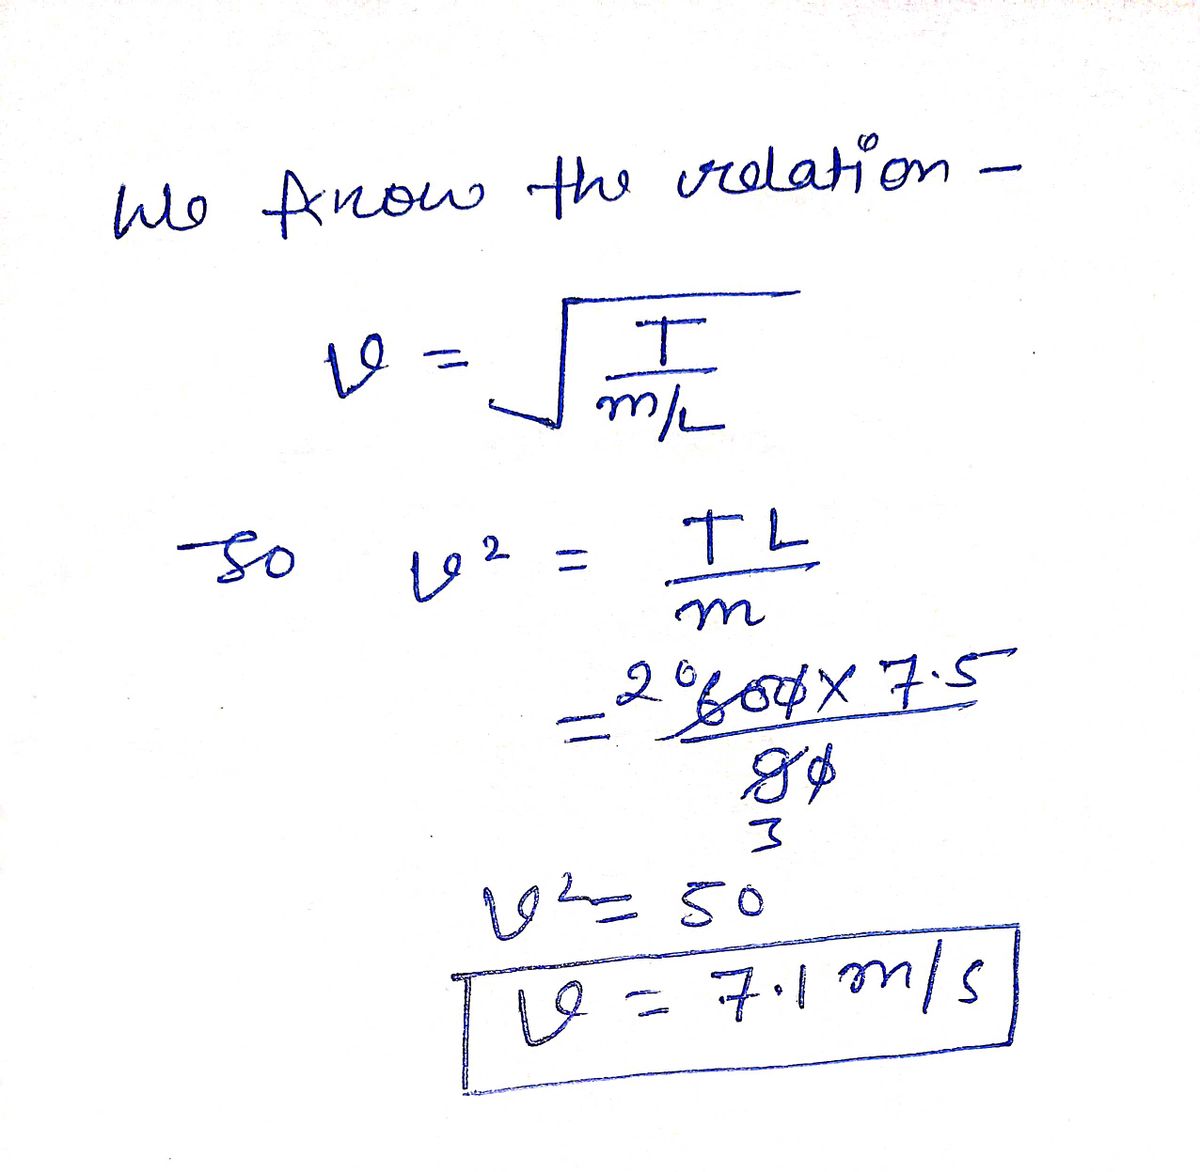 We know the relation -
v = √(T / m/L)
So v² = TL / m
= 20 600 × 7.5 / 90 3
v² = 50
v = 7.1 m/s